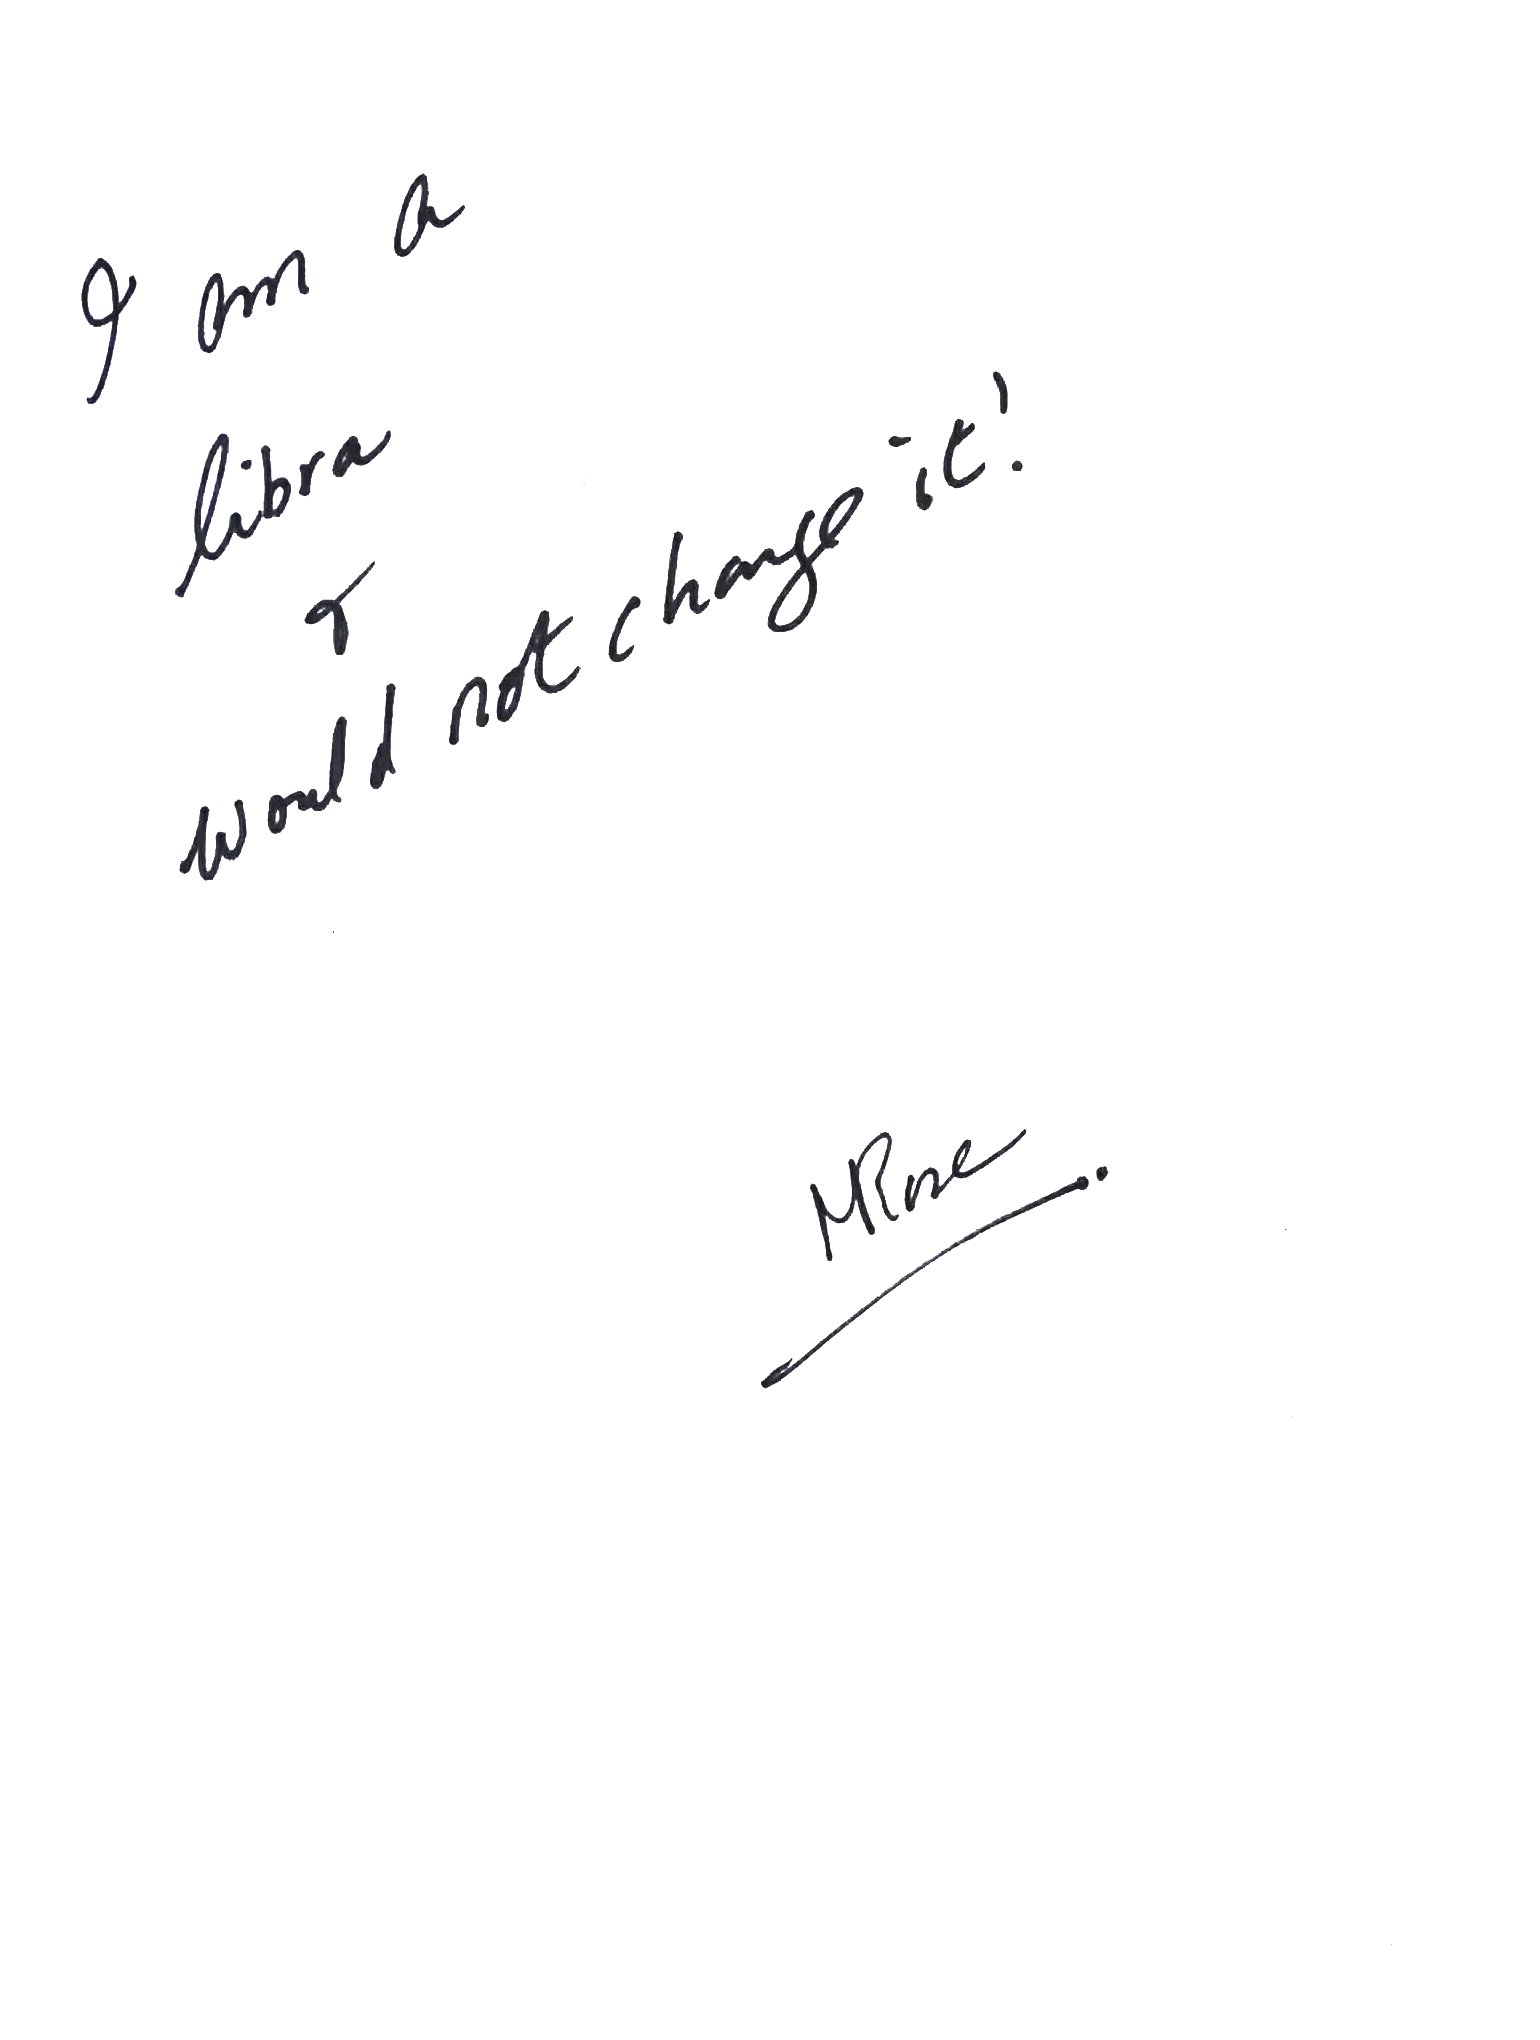 I am a
libra
&
would not change it!
MRose